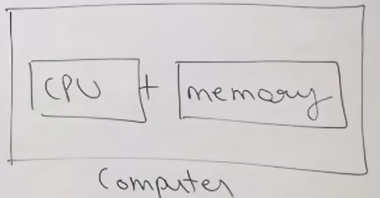 CPU + memory
Computer